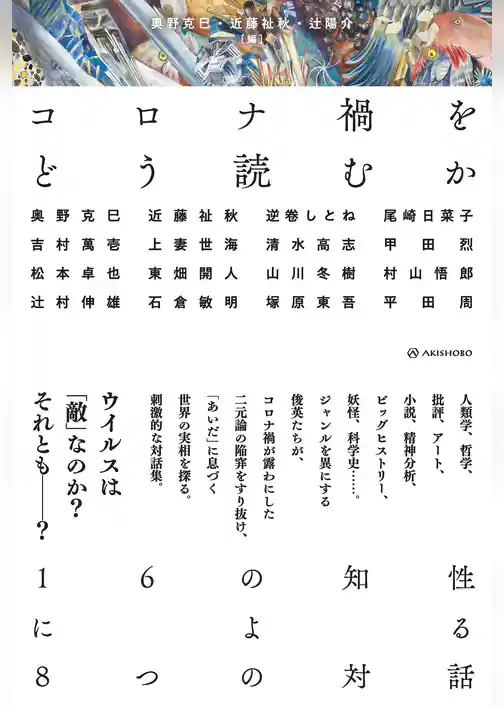 奥野克巳・近藤祉秋・辻陽介
[編]
コロナ禍を
どう読むか
奥野克巳 近藤祉秋 逆卷しとね 尾崎日菜子
吉村萬壱 上妻世海 清水高志 甲田烈
松本卓也 東畑開人 山川冬樹 村山悟郎
辻村伸雄 石倉敏明 塚原東吾 平田周
AKISHOBO
人類学、哲学、
批評、アート、
小説、精神分析、
ビッグヒストリー、
妖怪、科学史……。
ジャンルを異にする
俊英たちが、
コロナ禍が露わにした
二元論の陥穽をすり抜け、
「あいだ」に息づく
世界の実相を探る。
刺激的な対話集。
ウイルスは
「敵」なのか?
それとも——?
16の知性
による
8つの対話